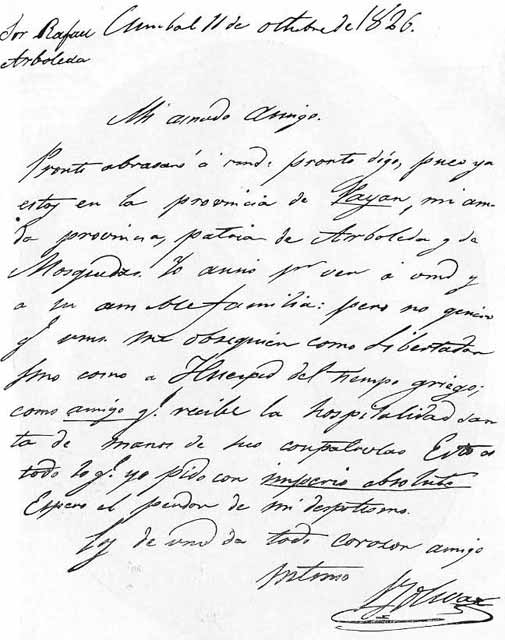 Sor Rafael Cumbal 11 de octubre de 1826.
Arboleda
Mi amado Amigo.
Pronto abrasaré á vmd: pronto digo, pues ya
estoy en la provincia de Payan, mi ama-
da provincia, patria de Arboleda y de
Mosquedas. Yo ancio pr ver á vmd y
a su amable familia: pero no quiero
qe vms. me obsequien como Libertador
sino como a Huesped del tiempo griego;
como amigo qe recibe la hospitalidad san-
ta de manos de sus compatriotas Esto es
todo lo qe yo pido con imperio absoluto
Espero el perdon de mi despotismo.
Soy de vmd de todo corason amigo
intimo
Bolivar